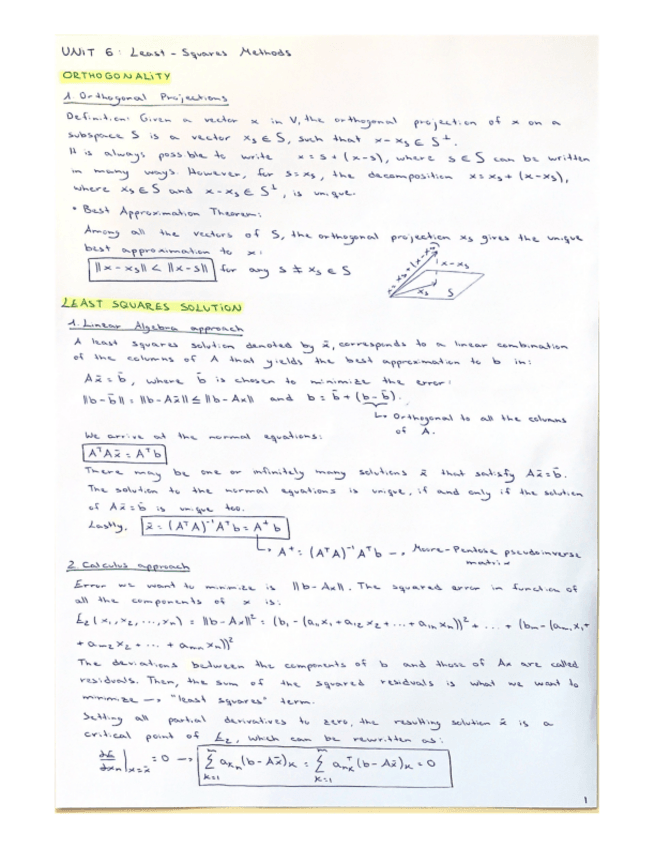 UNIT 6: Least-Squares Methods
ORTHOGONALITY
1. Orthogonal Projections
Definition: Given a vector x in V, the orthogonal projection of x on a
subspace S is a vector xs ∈ S, such that x-xs ∈ S⊥.
It is always possible to write x = s + (x-s), where s ∈ S can be written
in many ways. However, for s = xs, the decomposition x = xs + (x-xs),
where xs ∈ S and x-xs ∈ S⊥, is unique.
• Best Approximation Theorem:
Among all the vectors of S, the orthogonal projection xs gives the unique
best approximation to x:
||x-xs|| < ||x-s|| for any s ≠ xs ∈ S
x = xs + (x-xs)
x-xs
xs
S
LEAST SQUARES SOLUTION
1. Linear Algebra approach
A least squares solution denoted by x̄, corresponds to a linear combination
of the columns of A that yields the best approximation to b in:
Ax̄ = b̄, where b̄ is chosen to minimize the error:
||b-b̄|| = ||b-Ax̄|| ≤ ||b-Ax|| and b = b̄ + (b-b̄).
↳ Orthogonal to all the columns
of A.
We arrive at the normal equations:
AᵀAx̄ = Aᵀb
There may be one or infinitely many solutions x̄ that satisfy Ax̄ = b̄.
The solution to the normal equations is unique, if and only if the solution
of Ax̄ = b̄ is unique too.
Lastly, x̄ = (AᵀA)⁻¹Aᵀb = A⁺b
↳ A⁺ = (AᵀA)⁻¹Aᵀb → Moore-Penrose pseudoinverse
matrix
2. Calculus approach
Error we want to minimize is ||b-Ax||. The squared error in function of
all the components of x is:
E₂(x₁, x₂, ..., xn) = ||b-Ax||² = (b₁-(a₁₁x₁+a₁₂x₂+...+a₁nxn))² + ... + (bm-(am₁x₁+
+am₂x₂ + ... + amnxn))²
The deviations between the components of b and those of Ax are called
residuals. Then, the sum of the squared residuals is what we want to
minimize → "least squares" term.
Setting all partial derivatives to zero, the resulting solution x̄ is a
critical point of E₂, which can be rewritten as:
∂E/∂xn |x=x̄ = 0 → ∑ₖ₌₁ᵐ aₖn(b-Ax̄)ₖ = ∑ₖ₌₁ᵐ anₖᵀ(b-Ax̄)ₖ = 0
1